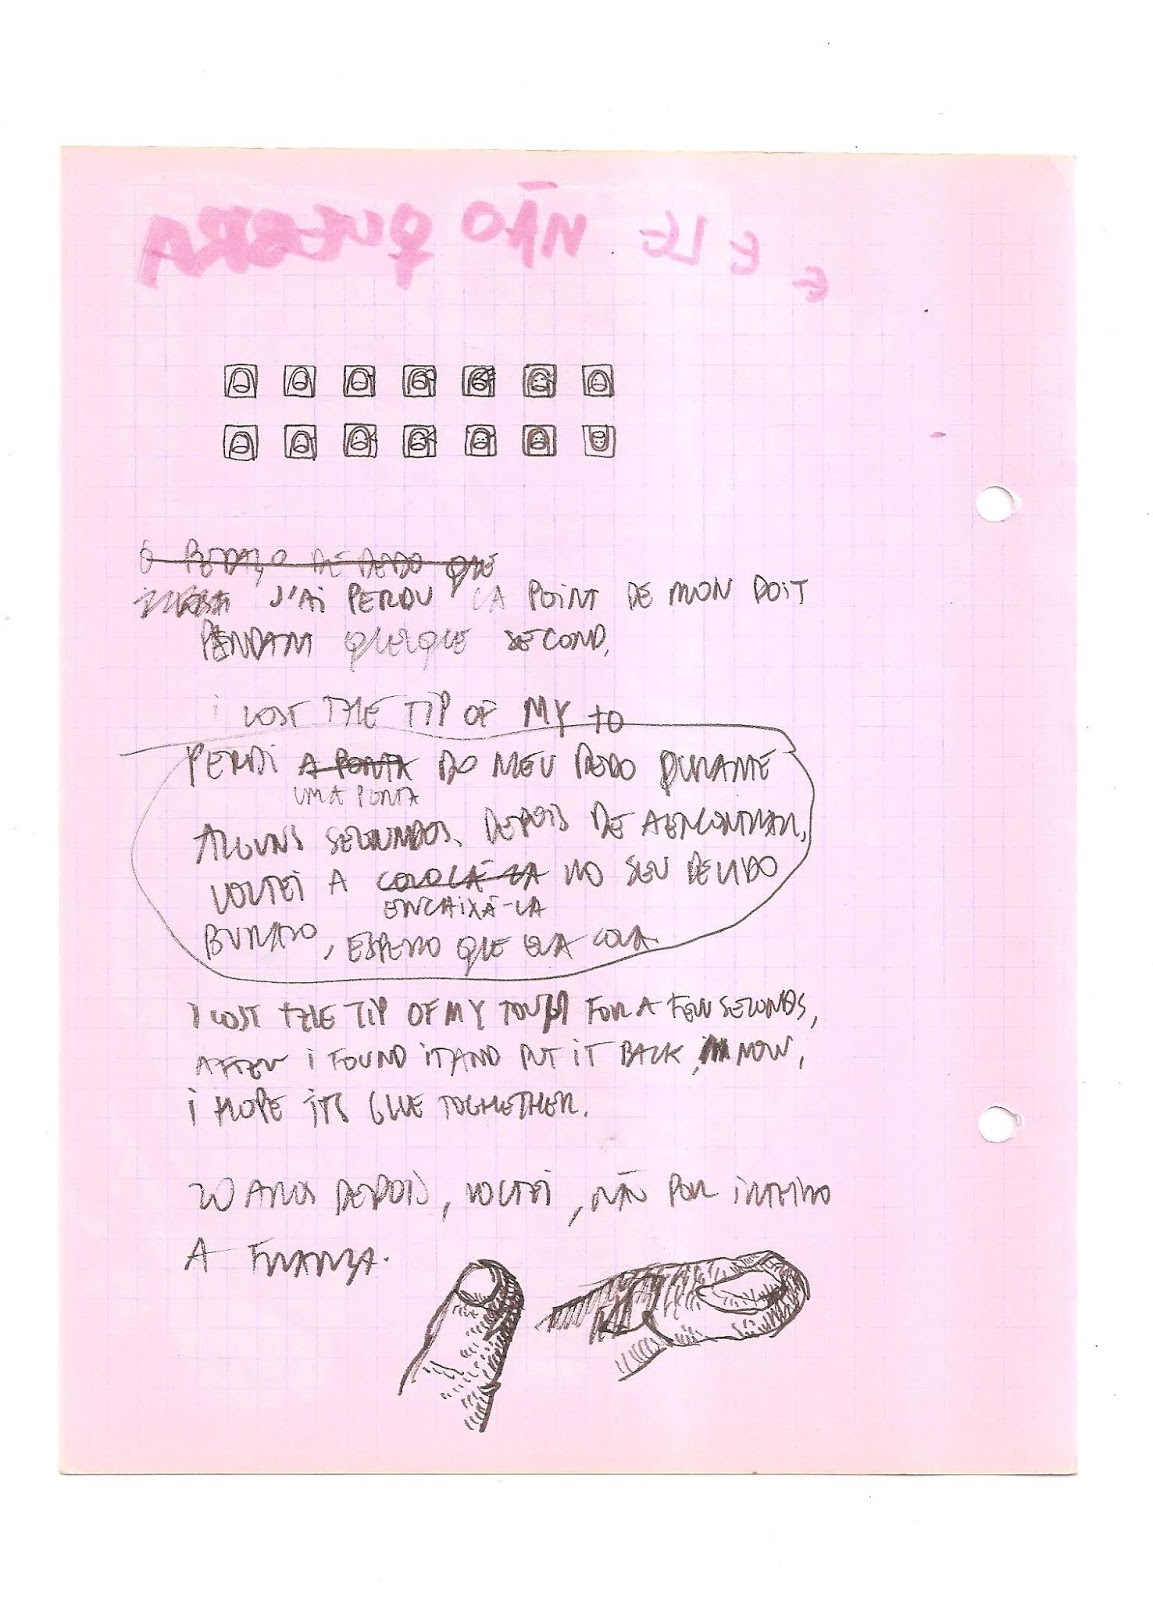 E ELE NÃO QUEBRA
O PEDAÇO DE DEDO QUE
J'AI PERDU LA POINT DE MON DOIT
PENDANT QUELQUE SECOND.
I LOST THE TIP OF MY TO
PERDI A PONTA DO MEU DEDO DURANTE
UMA PONTA
ALGUNS SEGUNDOS. DEPOIS DE A ENCONTRAR,
VOLTEI A COLOCÁ-LA NO SEU DEVIDO
ENCAIXÁ-LA
BURACO, ESPERO QUE ELA COLA.
I LOST THE TIP OF MY FOR A FEW SECONDS,
AFTER I FOUND IT AND PUT IT BACK, NOW,
I HOPE ITS GLUE TOGHETHER.
20 ANOS DEPOIS, VOLTEI, NÃO POR INTEIRO
A FRANÇA.